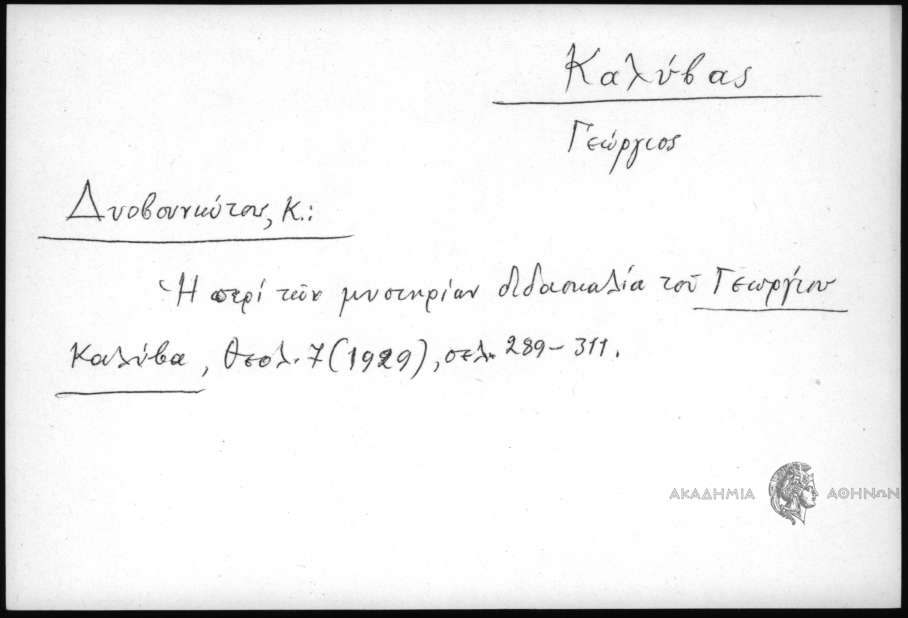 Καλύβας
Γεώργιος
Δυοβουνιώτου, Κ.:
Ἡ περί τῶν μυστηρίων διδασκαλία τοῦ Γεωργίου
Καλύβα, Θεολ. 7 (1929), σελ. 289-311.
ΑΚΑΔΗΜΙΑ ΑΘΗΝΩΝ